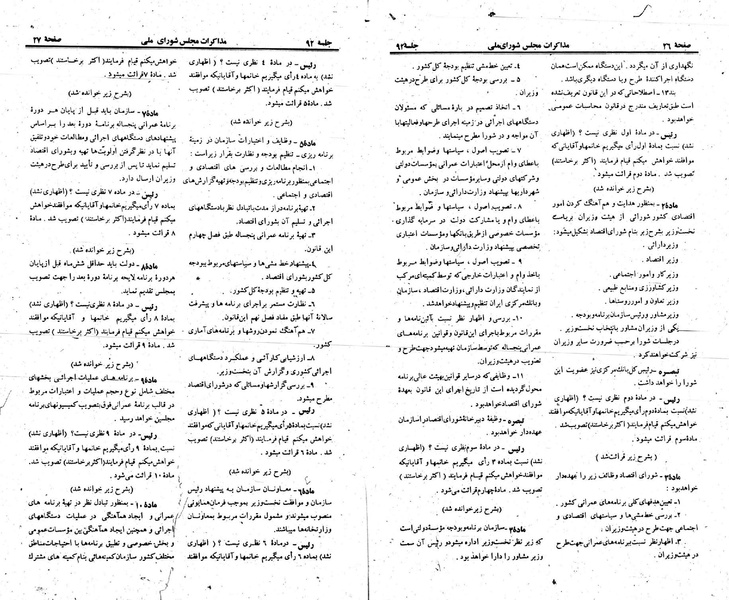 صفحهٔ ۲۶ مذاکرات مجلس شورای ملی جلسهٔ ۹۲
نگهداری از آن میگردد. این دستگاه ممکن است همان
دستگاه اجراکنندهٔ طرح و یا دستگاه دیگری باشد.
بند ۱۳ - اصطلاحاتی که در این قانون تعریف نشده
است تابع تعاریف مندرج در قانون محاسبات عمومی
خواهد بود.
رئیس - در مادهٔ اول نظری نیست؟ (اظهاری
نشد) نسبت بمادهٔ اول رأی میگیریم خانمها و آقایانیکه
موافقند خواهش میکنم قیام فرمایند (اکثر برخاستند)
تصویب شد. مادهٔ دوم قرائت میشود.
(بشرح زیر خوانده شد)
مادهٔ ۲ - بمنظور هدایت و هم‌آهنگ کردن امور
اقتصادی کشور شورائی از هیئت وزیران بریاست
نخست‌وزیر بشرح زیر بنام شورای اقتصاد تشکیل میشود:
وزیر دارائی.
وزیر اقتصاد.
وزیر کار و امور اجتماعی.
وزیر کشاورزی و منابع طبیعی.
وزیر تعاون و امور روستاها.
وزیر مشاور و رئیس سازمان برنامه و بودجه.
یکی از وزیران مشاور بانتخاب نخست‌وزیر.
در جلسات شورا برحسب ضرورت سایر وزیران
نیز شرکت خواهند کرد.
تبصره - رئیس کل بانک مرکزی نیز عضویت این
شورا را خواهد داشت.
رئیس - در مادهٔ دوم نظری نیست؟ (اظهاری
نشد) نسبت بمادهٔ دوم رأی میگیریم خانمها و آقایانیکه موافقند
خواهش میکنم قیام فرمایند (اکثر برخاستند) تصویب شد.
مادهٔ سوم قرائت میشود.
(بشرح زیر قرائت شد)
مادهٔ ۳ - شورای اقتصاد وظایف زیر را بعهده دار
خواهد بود:
۱ - تعیین هدفهای کلی برنامه‌های عمرانی کشور.
۲ - بررسی خط مشی‌ها و سیاستهای اقتصادی و
اجتماعی جهت طرح در هیئت وزیران.
۳ - اظهار نظر نسبت برنامه‌های عمرانی جهت طرح
در هیئت وزیران.
۴ - تعیین خط مشی تنظیم بودجهٔ کل کشور.
۵ - بررسی بودجهٔ کل کشور برای طرح در هیئت
وزیران.
۶ - اتخاذ تصمیم در بارهٔ مسائلی که مسئولان
دستگاههای اجرائی در زمینه اجرای طرحها و فعالیتها با
آن مواجه و در شورا مطرح مینمایند.
۷ - تصویب اصول، سیاستها و ضوابط مربوط
باعطای وام از محل اعتبارات عمرانی بمؤسسات دولتی
وشرکتهای دولتی و سایر مؤسسات در بخش عمومی و
شهرداریها بپیشنهاد وزارت دارائی و سازمان.
۸ - تصویب اصول، سیاستها و ضوابط مربوط
باعطای وام و یا مشارکت دولت در سرمایه گذاری
مؤسسات خصوصی از طریق بانکها و مؤسسات اعتباری
تخصصی بپیشنهاد وزارت دارائی و سازمان.
۹ - تصویب اصول، سیاستها و ضوابط مربوط
باخذ وام و اعتبارات خارجی که توسط کمیته‌ای مرکب
از نمایندگان وزارت دارائی، وزارت اقتصاد، سازمان
و بانک مرکزی ایران تنظیم و پیشنهاد خواهد شد.
۱۰ - بررسی و اظهار نظر نسبت بآئین‌نامه‌ها و
مقررات مربوط باجرای این قانون و قوانین برنامه‌های
عمرانی پنجساله که توسط سازمان تهیه میشود جهت طرح و
تصویب در هیئت وزیران.
۱۱ - وظایفی که در سایر قوانین بهیئت عالی برنامه
محول گردیده است از تاریخ اجرای این قانون بعهدهٔ
شورای اقتصاد خواهد بود.
تبصره - وظیفهٔ دبیرخانهٔ شورای اقتصاد را سازمان
عهده دار خواهد بود.
رئیس - در مادهٔ سوم نظری نیست؟ (اظهاری
نشد) نسبت بمادهٔ ۳ رأی میگیریم خانمها و آقایانیکه
موافقند خواهش میکنم قیام فرمایند (اکثر برخاستند)
تصویب شد. مادهٔ چهارم قرائت می‌شود.
(بشرح زیر خوانده شد)
مادهٔ ۴ - سازمان برنامه و بودجه مؤسسهٔ دولتی است
که زیر نظر نخست‌وزیر اداره میشود و رئیس آن سمت
وزیر مشاور را دارا خواهد بود.
جلسهٔ ۹۲ مذاکرات مجلس شورای ملی صفحهٔ ۲۷
رئیس - در مادهٔ ۴ نظری نیست؟ (اظهاری
نشد) به مادهٔ ۴ رأی میگیریم خانمها و آقایانیکه موافقند
خواهش میکنم قیام فرمایند (اکثر برخاستند) تصویب
شد. مادهٔ ۵ قرائت میشود.
(بشرح زیر خوانده شد)
مادهٔ ۵ - وظایف و اختیارات سازمان در زمینهٔ
برنامه ریزی - تنظیم بودجه و نظارت بقرار زیر است:
۱ - انجام مطالعات و بررسی های اقتصادی و
اجتماعی بمنظور برنامه‌ریزی و تنظیم بودجه و تهیه گزارش‌های
اقتصادی و اجتماعی.
۲ - تهیهٔ برنامه دراز مدت با تبادل نظر با دستگاههای
اجرائی و تسلیم آن بشورای اقتصاد.
۳ - تهیهٔ برنامه عمرانی پنجساله طبق فصل چهارم
این قانون.
۴ - پیشنهاد خط مشی‌ها و سیاستهای مربوط ببودجه
کل کشور بشورای اقتصاد.
۵ - تهیه و تنظیم بودجهٔ کل کشور.
۶ - نظارت مستمر بر اجرای برنامه ها و پیشرفت
سالانهٔ آنها طبق مفاد فصل نهم این قانون.
۷ - هم‌آهنگ نمودن روشها و برنامه‌های آماری
کشور.
۸ - ارزشیابی کارآئی و عملکرد دستگاههای
اجرائی کشوری و گزارش آن بنخست‌وزیر.
۹ - بررسی گزارشها و مسائلی که در شورای اقتصاد
مطرح میشود.
رئیس - در مادهٔ ۵ نظری نیست؟ (اظهاری
نشد) نسبت بمادهٔ ۵ رأی میگیریم خانمها و آقایانیکه موافقند
خواهش میکنم قیام فرمایند (اکثر برخاستند) تصویب
شد. مادهٔ ۶ قرائت میشود.
(بشرح زیر خوانده شد)
مادهٔ ۶ - معاونان سازمان به پیشنهاد رئیس
سازمان و موافقت نخست‌وزیر بموجب فرمان همایونی
منصوب میشوند و مشمول مقررات مربوط بمعاونان
وزارتخانه‌ها میباشند.
رئیس - در مادهٔ ۶ نظری نیست؟ (اظهاری
نشد) بمادهٔ ۶ رأی میگیریم خانمها و آقایانیکه موافقند
خواهش میکنم قیام فرمایند (اکثر برخاستند) تصویب
شد. مادهٔ ۷ قرائت میشود.
(بشرح زیر خوانده شد)
مادهٔ ۷ - سازمان باید قبل از پایان هر دورهٔ
برنامهٔ عمرانی پنجساله برنامهٔ دورهٔ بعد را بر اساس
پیشنهادهای دستگاههای اجرائی و مطالعات خود و تلفیق
آنها با در نظر گرفتن اولویت‌ها تهیه و بشورای اقتصاد
تسلیم نماید تا پس از بررسی و تأیید برای طرح در هیئت
وزیران ارسال دارد.
رئیس - در ماده ۷ نظری نیست؟ (اظهاری نشد)
بماده ۷ رأی میگیریم خانمها و آقایانیکه موافقند خواهش
میکنم قیام فرمایند (اکثر برخاستند) تصویب شد. مادهٔ
۸ قرائت میشود.
(بشرح زیر خوانده شد)
مادهٔ ۸ - دولت باید حداقل شش‌ماه قبل از پایان
هر دورهٔ برنامه لایحه برنامهٔ دورهٔ بعد را جهت تصویب
بمجلس تقدیم نماید.
رئیس - در مادهٔ ۸ نظری نیست؟ (اظهاری نشد)
بمادهٔ ۸ رأی میگیریم خانمها و آقایانیکه موافقند
خواهش میکنم قیام فرمایند (اکثر برخاستند) تصویب
شد. مادهٔ ۹ قرائت میشود.
(بشرح زیر خوانده شد)
مادهٔ ۹ - برنامه‌های عملیات اجرائی بخشهای
مختلف شامل نوع و حجم عملیات و اعتبارات مربوط
در قالب برنامهٔ عمرانی فوق بتصویب کمیسیونهای برنامه
مجلسین خواهد رسید.
رئیس - در مادهٔ ۹ نظری نیست؟ (اظهاری نشد)
نسبت بمادهٔ ۹ رأی میگیریم خانمها و آقایانیکه موافقند
خواهش میکنم قیام فرمایند (اکثر برخاستند) تصویب شد.
مادهٔ ۱۰ قرائت میشود.
(بشرح زیر خوانده شد)
مادهٔ ۱۰ - بمنظور تبادل نظر در تهیهٔ برنامه های
عمرانی و ایجاد هماهنگی در عملیات دستگاههای
اجرائی و همچنین ایجاد هم‌آهنگی بین مؤسسات عمومی
و بخش خصوصی و تطبیق برنامه‌ها با احتیاجات مناطق
مختلف کشور سازمان کمیته‌هائی بنام کمیته های مشترک